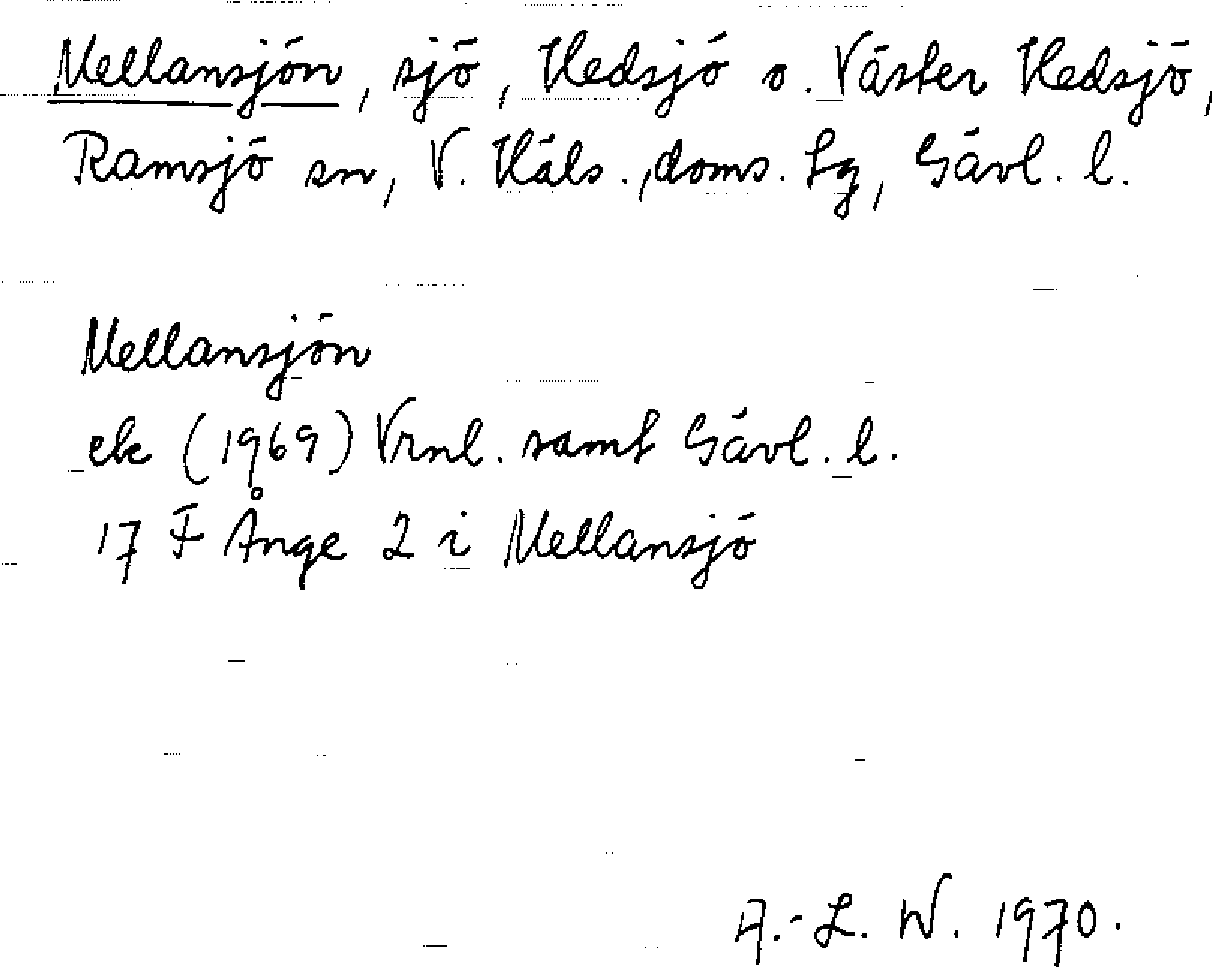 Mellansjön, sjö, Hedsjö o. Väster Hedsjö,
Ramsjö sn, V. Häls., doms. Lg, Gävl. l.
Mellansjön
ek (1969) Vrnl. samt Gävl. l.
17 F Ånge 2 i Mellansjö
A.-L. W. 1970.